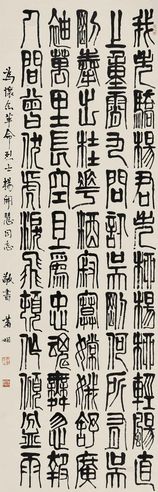 我失驕楊君失柳楊柳輕颺直
上重霄九問訊吳剛何所有吳
剛捧出桂花酒寂寞嫦娥舒廣
袖萬里長空且為忠魂舞忽報
人間曾伏虎淚飛頓作傾盆雨
為懷念革命烈士楊開慧同志 敬書 蕭嫻